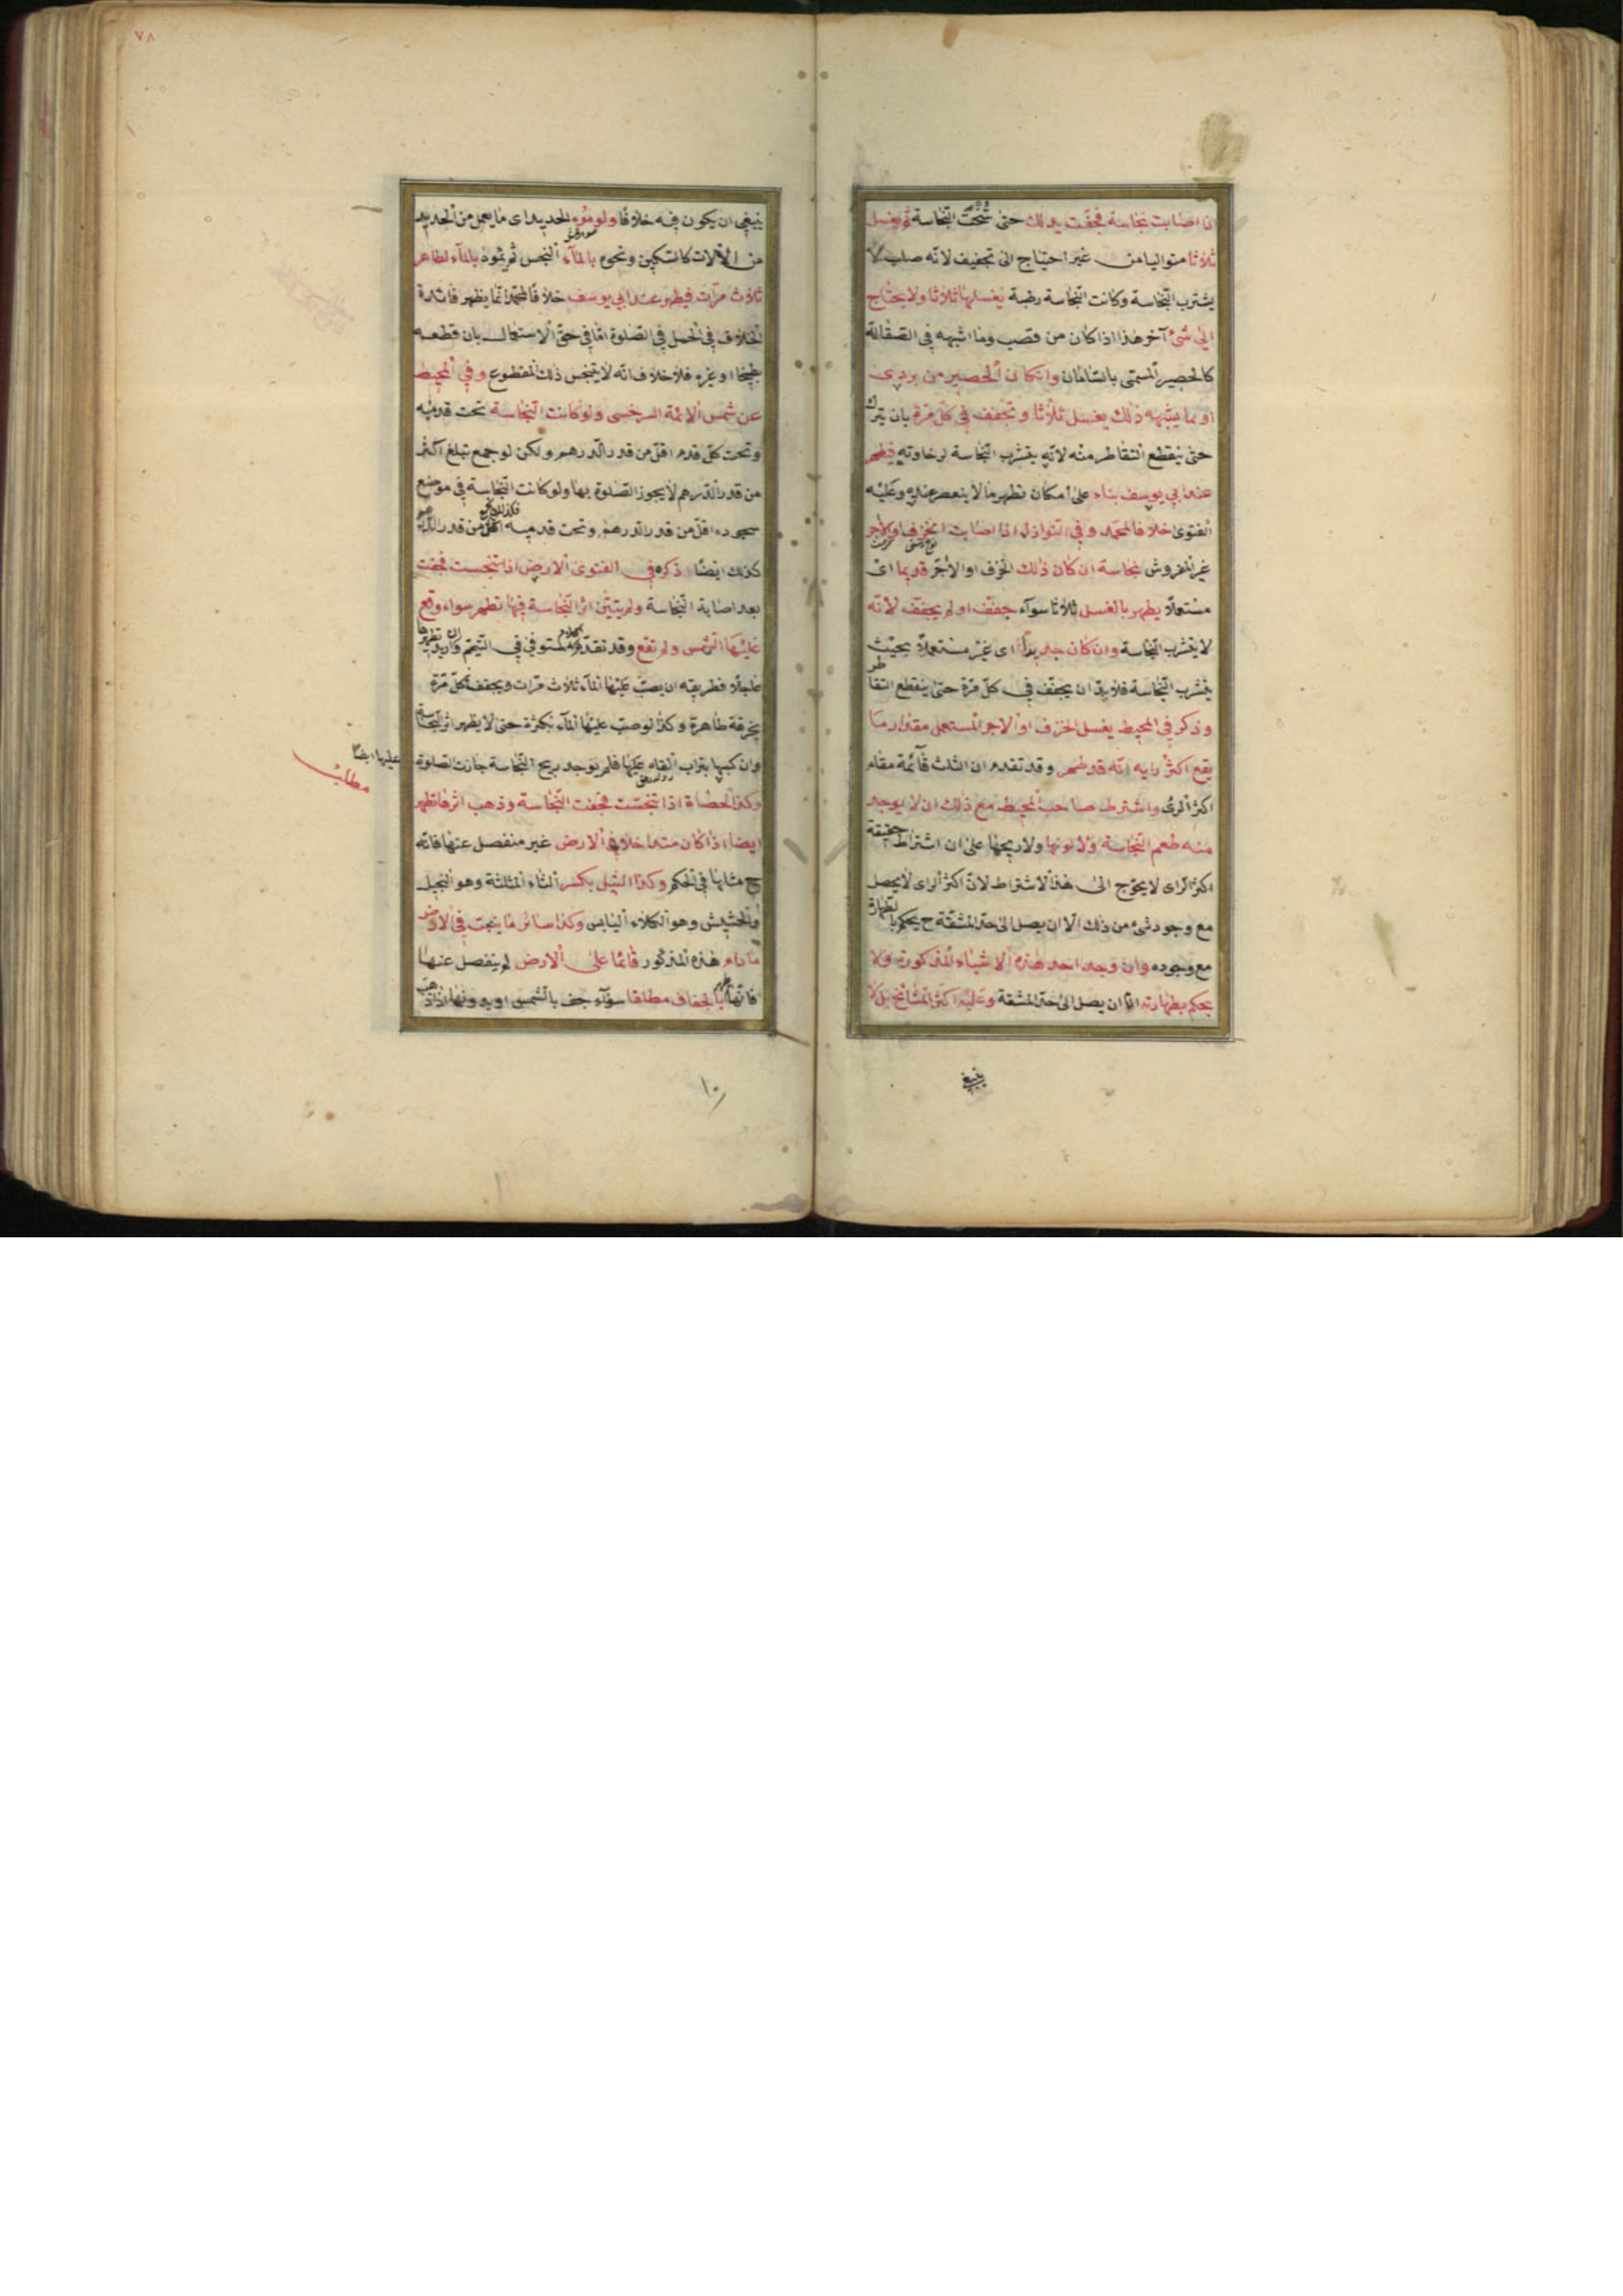 اذا اصابت نجاسة فجفت يدلك حتى نُحّتت النجاسة ثم يغسل
ثلاثا متواليا من غير احتياج الى تجفيف لانه صلب لا
يتشرب النجاسة وكانت النجاسة رطبة يغسلها ثلاثا ولا يحتاج
الى شئ آخر هذا اذا كان من قصب وما اشبهه فى الصقالة
كالحصير المسمى بالسامان وان كان الحصير من بردى
او ما يشبهه ذلك يغسل ثلاثا وتجفف فى كل مرة بان يترك
حتى ينقطع التقاطر منه لانه يتشرب النجاسة لرخاوته فيطهر
عند ابى يوسف بناء على امكان تطهر ما لا ينعصر عنده وعليه
الفتوى خلافا لمحمد وفى النوازل اذا اصابت الخزف او الآجر
غير المفروش نجاسة ان كان ذلك الخزف او الآجر قديما اى
مستعملا يطهر بالغسل ثلاثا سوآء جفف او لم يجفف لانه
لا يتشرب النجاسة وان كان جديدا اى غير مستعملا بحيث
يتشرب النجاسة فلا بد ان يجفف فى كل مرة حتى ينقطع التقاطر
وذكر فى المحيط يغسل الخزف او الآجر المستعمل مقدار ما
يقع اكثر رايه انه قد طهر وقد تقدم ان الثلث قآئمة مقام
اكثر الرى واشترط صاحب المحيط مع ذلك ان لا يوجد
منه طعم النجاسة ولا لونها ولا ريحها على ان اشتراط حقيقة
اكثر الراى لا يحوج الى هذا الاشتراط لان اكثر الراى لا يحصل
مع وجود شئ من ذلك الا ان يصل الى حد المشقة ح يحكم بالطهارة
مع وجوده وان وجد احد هذه الاشياء المذكورة ولا
يحكم بطهارته الا ان يصل الى حد المشقة وعليه اكثر المشائخ بل لا
ينبغى
٧٨
ينبغى ان يكون فيه خلافا ولو موّه الحديد اى ما يعمل من الحديد
من الآلات كالسكين ونحوه بالمآء النجس ثم يموه بالمآء الطاهر
ثلاث مرات فيطهر عند ابى يوسف خلافا لمحمد انما يظهر فائدة
الخلاف فى الحمل فى الصلوة اما فى حق الاستعمال بان قطعه
بطيخا او غيره فلا خلاف انه لا يتنجس ذلك المقطوع وفى المحيط
عن شمس الائمة السرخسى ولو كانت النجاسة تحت قدميه
وتحت كل قدم اقل من قدر الدرهم ولكن لو جمع تبلغ اكثر
من قدر الدرهم لا يجوز الصلوة بها ولو كانت النجاسة فى موضع
سجوده اقل من قدر الدرهم وتحت قدميه اقل من قدر الدرهم
كذلك ايضا ذكره فى الفتوى الارض اذا تنجست فجفت
بعد اصابة النجاسة ولم يتبين اثر النجاسة فيها تطهر سواء وقع
عليها الشمس ولم تقع وقد تقدم مستوفى فى التيمم وان اريد تطهيرها
عاجلا فطريقه ان يصب عليها المآء ثلاث مرات ويجفف كل مرة
بخرقة طاهرة وكذا لو صب عليها المآء بكثرة حتى لا يظهر اثر النجاسة
وان كبسها بتراب القاه عليها فلم يوجد ريح النجاسة جازت الصلوة
عليها ايضا
مطلب
وكذا الحصاة اذا تنجست فجفت النجاسة وذهب اثرها تطهر
ايضا اذا كان متداخلا فى الارض غير منفصل عنها فانه
ح مثابها فى الحكم وكذا الثيل بكسر الثاء المثلثة وهو النجيل
والحشيش وهو الكلاء اليابس وكذا سائر ما ينبت فى الارض
ما دام هذه المذكور قائما على الارض لم ينفصل عنها
فانها بالجفاف مطلقا سوآء جف بالشمس او بدونها اذا ذهب